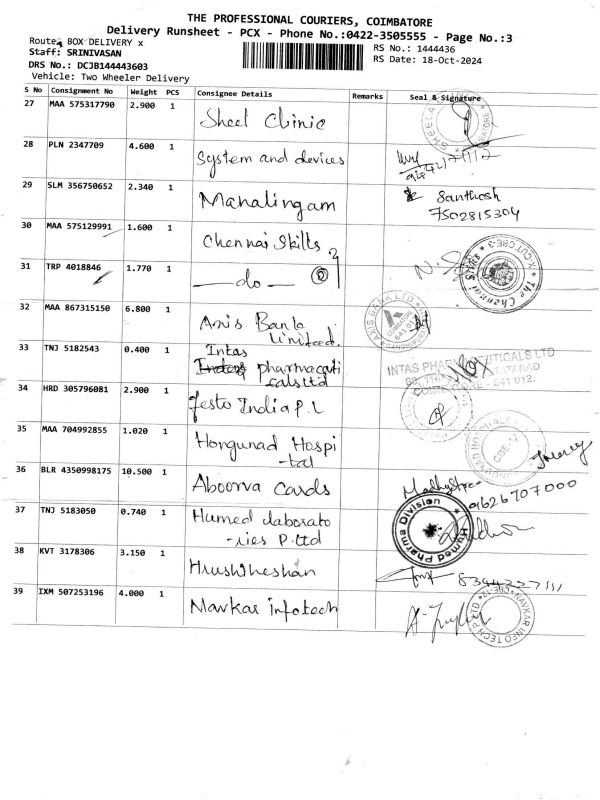 THE PROFESSIONAL COURIERS, COIMBATORE
Delivery Runsheet - PCX - Phone No.:0422-3505555 - Page No.:3
Route: BOX DELIVERY x
RS No.: 1444436
Staff: SRINIVASAN
RS Date: 18-Oct-2024
DRS No.: DCJB144443603
Vehicle: Two Wheeler Delivery
S No Consignment No Weight PCS Consignee Details Remarks Seal & Signature
27 MAA 575317790 2.900 1 Sheel Clinic
28 PLN 2347709 4.600 1 System and devices
29 SLM 356750652 2.340 1 Mahalingam Santhosh
7502815304
30 MAA 575129991 1.600 1 Chennai Skills
The Chennai
31 TRP 4018846 1.770 1 —do— 2
32 MAA 867315150 6.800 1 Axis Bank
Limited.
AXIS BANK LTD
33 TNJ 5182543 0.400 1 Intas
pharmaceuti
cals ltd
INTAS PHARMACEUTICALS LTD
641 012.
34 HRD 305796081 2.900 1 Festo India P.L
35 MAA 704992855 1.020 1 Horgunad Hospi
-tal
36 BLR 4350998175 10.500 1 Aboorva Cards
9626707000
37 TNJ 5183050 0.740 1 Humed laborato
-ries P. Ltd
Humed Pharma Division
38 KVT 3178306 3.150 1 Hrushikeshan
39 IXM 507253196 4.000 1 Navkar infotech
NAVKAR INFO TECH P LTD